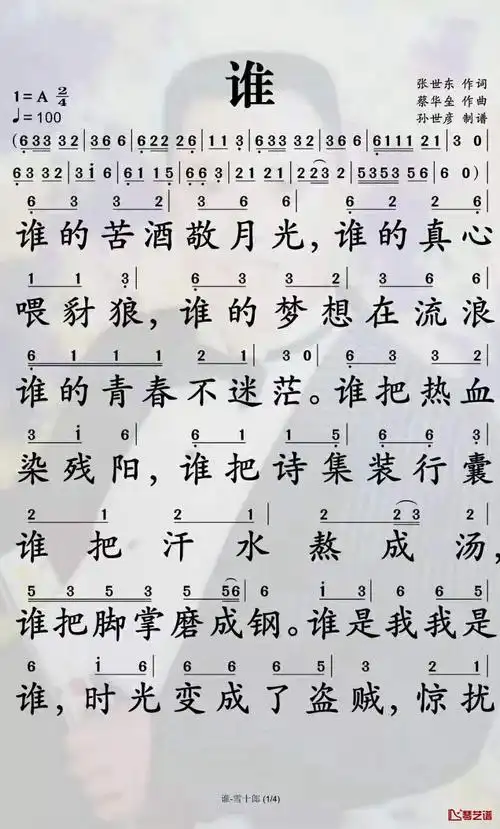 谁
1=A 2/4
♩=100
张世东 作词
蔡华垒 作曲
孙世彦 制谱
(6 3 3 3 2|3 6 6|6 2 2 2 6|1 1 3|6 3 3 3 2|3 6 6|6 1 1 1 2 1|3 0
6 3 3 2|3 i 6|1 5 1 5|6 6 3|2 1 2 1|2 2 3|5 3 5 3 5 6|6 0)|
6 3 3 2|3 6 6|6 2 2 6|
谁的苦酒敬月光，谁的真心
1 1 3|6 3 3 2|3 6 6|
喂豺狼，谁的梦想在流浪
6 1 1 1|2 1|3 0|6 3 3 2|
谁的青春不迷茫。谁把热血
3 i 6|6 1 1 5|6 6 3|
染残阳，谁把诗集装行囊
2 1 2 1|2 2 3|2
谁把汗水熬成汤，
5 3 5 3|5 5 6|6 3 i|6 6 5|
谁把脚掌磨成钢。谁是我我是
6 i 6|6 5 6 6|3 2 1|
谁，时光变成了盗贼，惊扰
谁-雪十郎 (1/4)
琴艺谱